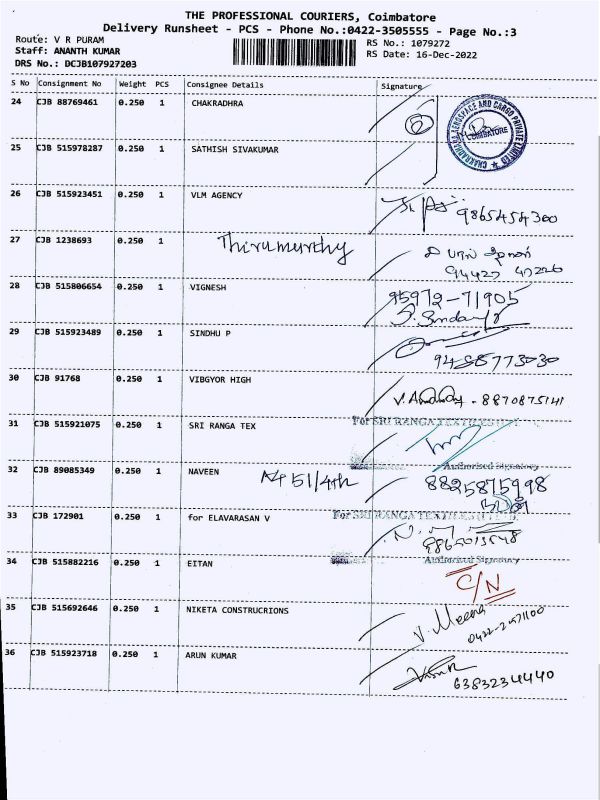 THE PROFESSIONAL COURIERS, Coimbatore
Delivery Runsheet - PCS - Phone No.:0422-3505555 - Page No.:3
Route: V R PURAM
RS No.: 1079272
Staff: ANANTH KUMAR
RS Date: 16-Dec-2022
DRS No.: DCJB107927203
S No Consignment No Weight PCS Consignee Details Signature
24 CJB 88769461 0.250 1 CHAKRADHRA
CHAKRADHARA AEROSPACE AND CARGO PRIVATE LIMITED
COIMBATORE
25 CJB 515978287 0.250 1 SATHISH SIVAKUMAR
26 CJB 515923451 0.250 1 VLM AGENCY
9865454300
27 CJB 1238693 0.250 1 Thirumurthy
94427 47226
28 CJB 515806654 0.250 1 VIGNESH 95972-71905
29 CJB 515923489 0.250 1 SINDHU P
30 CJB 91768 0.250 1 VIBGYOR HIGH
8870875141
31 CJB 515921075 0.250 1 SRI RANGA TEX
For SRI RANGA TEXTILES
Authorised Signatory
32 CJB 89085349 0.250 1 NAVEEN A4 51/4th 8825875998
33 CJB 172901 0.250 1 for ELAVARASAN V
For SRI RANGA TEXTILES
Authorised Signatory
34 CJB 515882216 0.250 1 EITAN C/N
35 CJB 515692646 0.250 1 NIKETA CONSTRUCRIONS V. Meena
36 CJB 515923718 0.250 1 ARUN KUMAR
6383234440